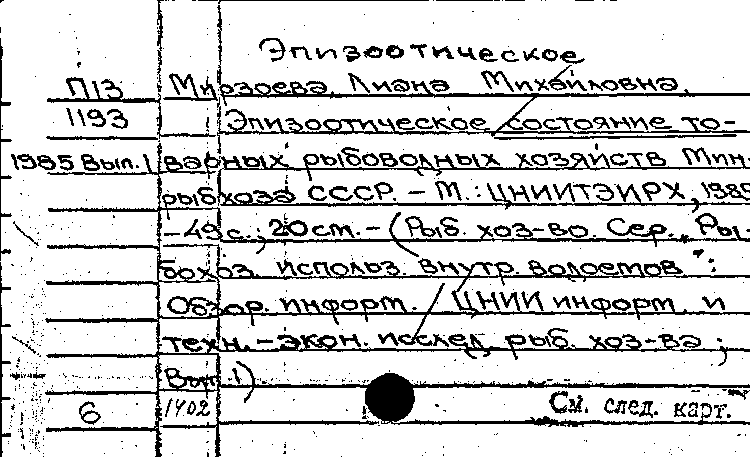 Эпизоотическое
П13 Мирзоева, Лиана Михайловна.
1193 Эпизоотическое состояние то-
1985 Вып. 1 варных рыбоводных хозяйств Мин.
рыбхоза СССР. – М.: ЦНИИТЭИРХ, 1985
– 49 с.; 20 см. – (Рыб. хоз-во. Сер. „Ры-
бохоз. использ. внутр. водоемов":
Обзор. информ. ЦНИИ информ. и
техн.-экон. исслед. рыб. хоз-ва;
Вып. 1)
6 1402 См. след. карт.